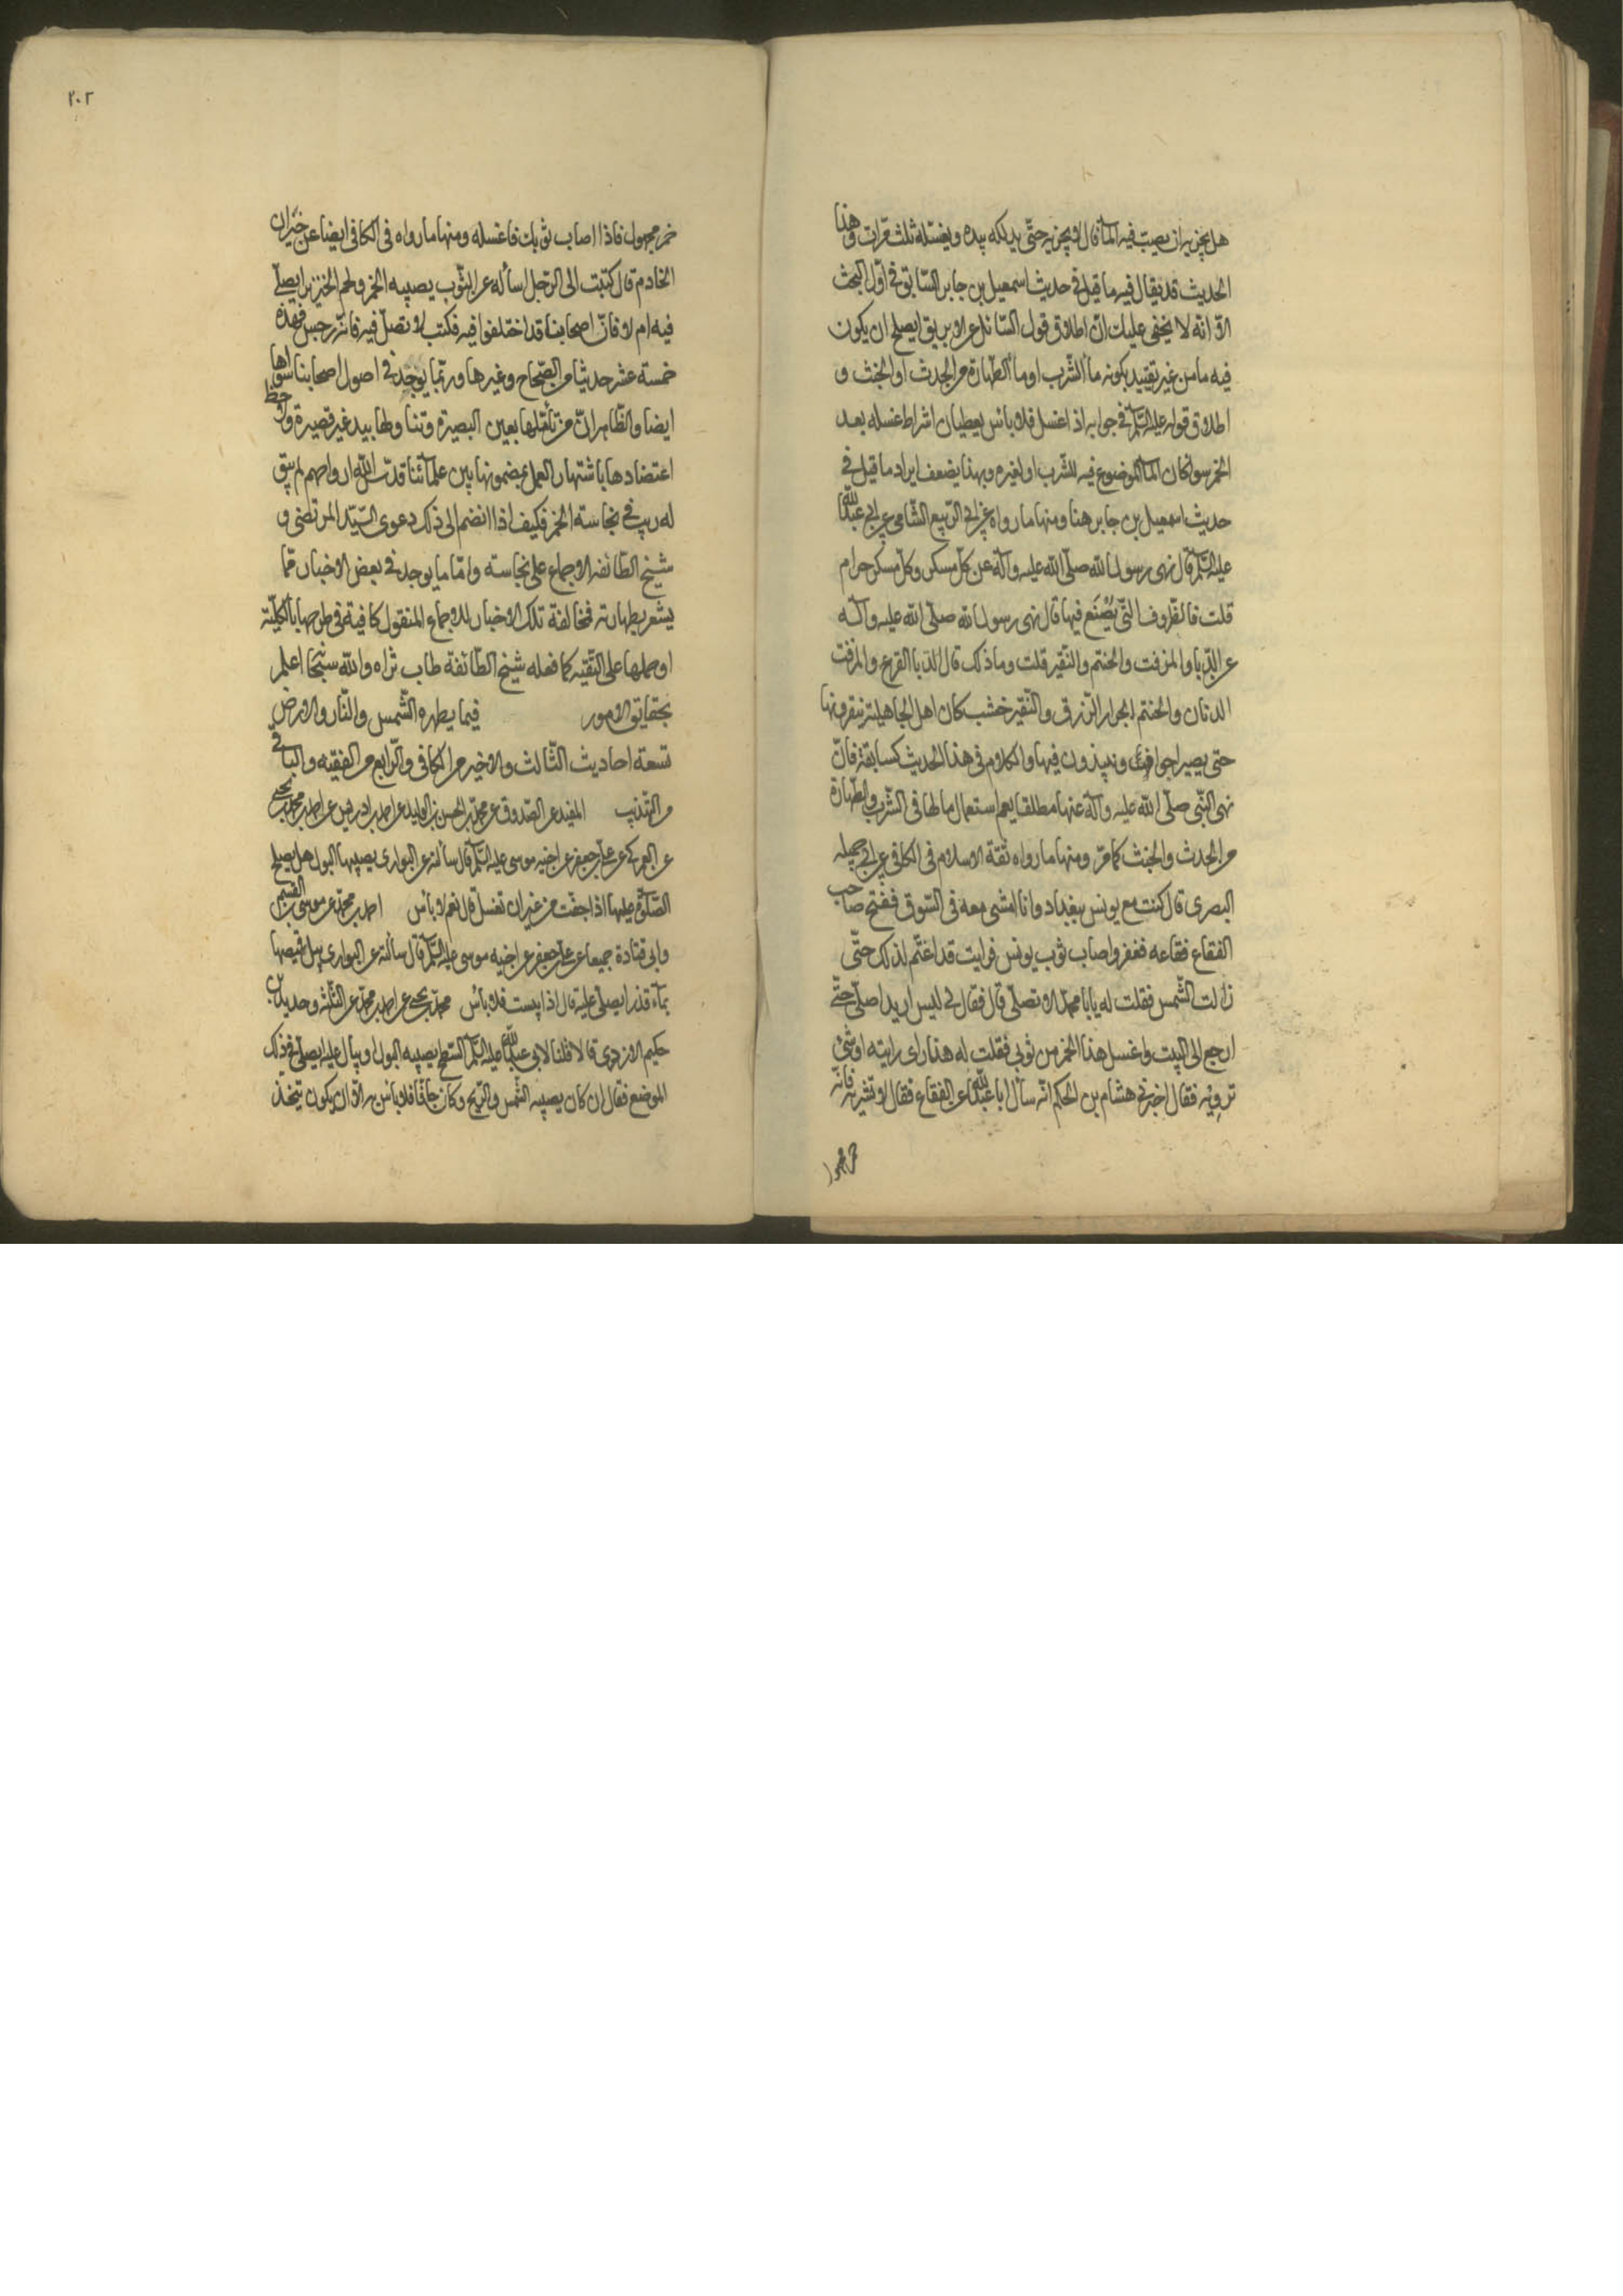 هل يجزيه ان يصب فيه الماء قال لا يجزيه حتى يدلكه بيده ويغسله ثلث مرات وهذا
الحديث قد يقال فيه ما قيل في حديث اسمعيل بن جابر السابق في اول البحث
الا انه لا يخفى عليك ان اطلاق قول السائل عن الابريق ايصلح ان يكون
فيه ماء من غير تقييد بكونه ماء الشرب او ماء الطهارة من الحدث او الخبث و
اطلاق قوله عليه السلم في جوابه اذا غسل فلا باس يعطيان اشراط غسله بعد
الخمر سواء كان الماء الموضوع فيه للشرب او لغيره وبهذا يضعف ايراد ما قيل في
حديث اسمعيل بن جابر هنا ومنها ما رواه عن ابي الربيع الشامي عن ابي عبد الله
عليه السلم قال نهى رسول الله صلى الله عليه وآله عن كل مسكر وكل مسكر حرام
قلت فالظروف التي يصنع فيها قال نهى رسول الله صلى الله عليه وآله
عن الدبا والمزفت والحنتم والنقير قلت وما ذلك قال الدبا القرع والمزفت
الدنان والحنتم الجرار الزرق والنقير خشب كان اهل الجاهلية ينقرونها
حتى يصير اجواف وينبذون فيها والكلام في هذا الحديث كسابقه فان
نهى النبي صلى الله عليه وآله عنها مطلقا يعم استعمال ما لها في الشرب والطهارة
من الحدث والخبث كما مر ومنها ما رواه ثقة الاسلام في الكافي عن ابي جميله
البصرى قال كنت مع يونس ببغداد وانا امشى معه في السوق ففتح صاحب
الفقاع فقاعه فقفز واصاب ثوب يونس فرايت قد اغتم لذلك حتى
زالت الشمس فقلت له يا ابا محمد الا تصلى قال فقال لى ليس اريد اصلى حتى
ارجع الى البيت واغسل هذا الخمر من ثوبى فقلت له هذا راى رايته او شئ
ترويه فقال اخبرني هشام بن الحكم انه سال ابا عبد الله عن الفقاع فقال لا تشربه فانه
خمر مجهول
٢٠٢
خمر مجهول فاذا اصاب ثوبك فاغسله ومنها ما رواه في الكافي ايضا عن خيران
الخادم قال كتبت الى الرجل اسأله عن الثوب يصيبه الخمر ولحم الخنزير ايصلى
فيه ام لا فان اصحابنا قد اختلفوا فيه فكتب لا تصل فيه فانه رجس فهذه
خمسة عشر حديثا من الصحاح وغيرها وربما يوجد في اصول اصحابنا سواها
ايضا والظاهر ان من تأملها بعين البصيرة وتناولها بيد غير قصيرة ولاحظ
اعتضادها باشتهار العمل بمضمونها بين علمائنا قدس الله ارواحهم لم يبق
له ريب في نجاسة الخمر فكيف اذا انضم الى ذلك دعوى السيد المرتضى و
شيخ الطائفه الاجماع على نجاسته واما ما يوجد في بعض الاخبار مما
يشعر بطهارته فمخالفة تلك الاخبار للاجماع المنقول كافية في طرحها بالكلية
او حملها على التقيه كما فعله شيخ الطائفة طاب ثراه والله سبحا اعلم
بحقايق الامور فيما يطهره الشمس والنار والارض
تسعة احاديث الثالث والاخير من الكافي والرابع من الفقيه والباقي
من التهذيب المفيد عن الصدوق عن محمد بن الحسن بن الوليد عن احمد بن ادريس عن احمد بن محمد بن يحيى
عن العمركى عن على بن جعفر عن اخيه موسى عليه السلم قال سألته عن البوارى يصيبها البول هل يصلح
الصلوة عليها اذا جفت من غير ان تغسل قال نعم لا باس احمد بن محمد عن موسى بن القسم
وابى قتادة جميعا عن على بن جعفر عن اخيه موسى عليه السلم قال سألته عن البوارى يبل قصبها
بماء قذر ايصلى عليه قال اذا يبست فلا باس محمد بن يحيى عن احمد بن محمد عن الثلثة وحديد بن
حكيم الازدى قالا قلنا لابى عبد الله عليه السلم السطح يصيبه البول او يبال عليه ايصلى في ذلك
الموضع فقال ان كان يصيبه الشمس والريح وكان جافا فلا باس به الا ان يكون يتخذ